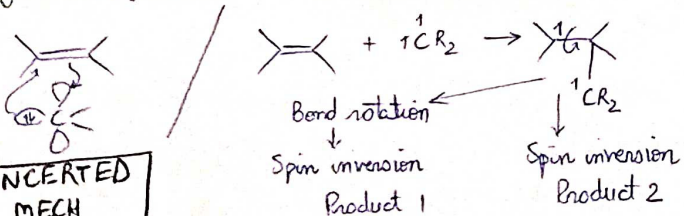 + 1 1CR2 →
1 1CR2
Bond rotation
Spin inversion
Product 1
Spin inversion
Product 2
C
NCERTED
MECH